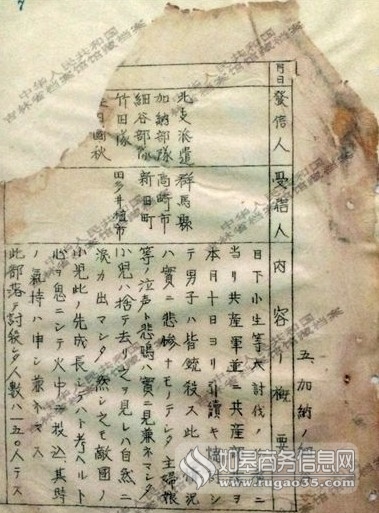 五、加納ノ
月日
發信人
受信人
内容ノ概要
北支派遣
加納部隊
細谷部隊
竹田隊
國秋
群馬縣
高崎市
新田町
田多井植市
目下小生等大討伐ノ
當リ共産軍並ニ共産
本月十日ヨリ引續キ
テ男子ハ皆銃殺ス此ノ状況
ハ實ニ悲惨ナモノテシタ主婦娘
等ノ泣声ト悲鳴ハ實ニ見兼ネマシタ
小児ハ捨テ去リ之ヲ見レハ自然ニ
涙カ出マシタ然シ之モ敵國ノ
小児此ノ先成長シテハト考ヘルト
心ヲ鬼ニシテ火中ニ投込ミ其時
ノ氣持ハ申シ兼ネマス
此部落テ討殺シタ人数ハ一五〇人テス
中华人民共和国
吉林省档案馆馆藏档案
如皋商务信息网
www.rugao35.com